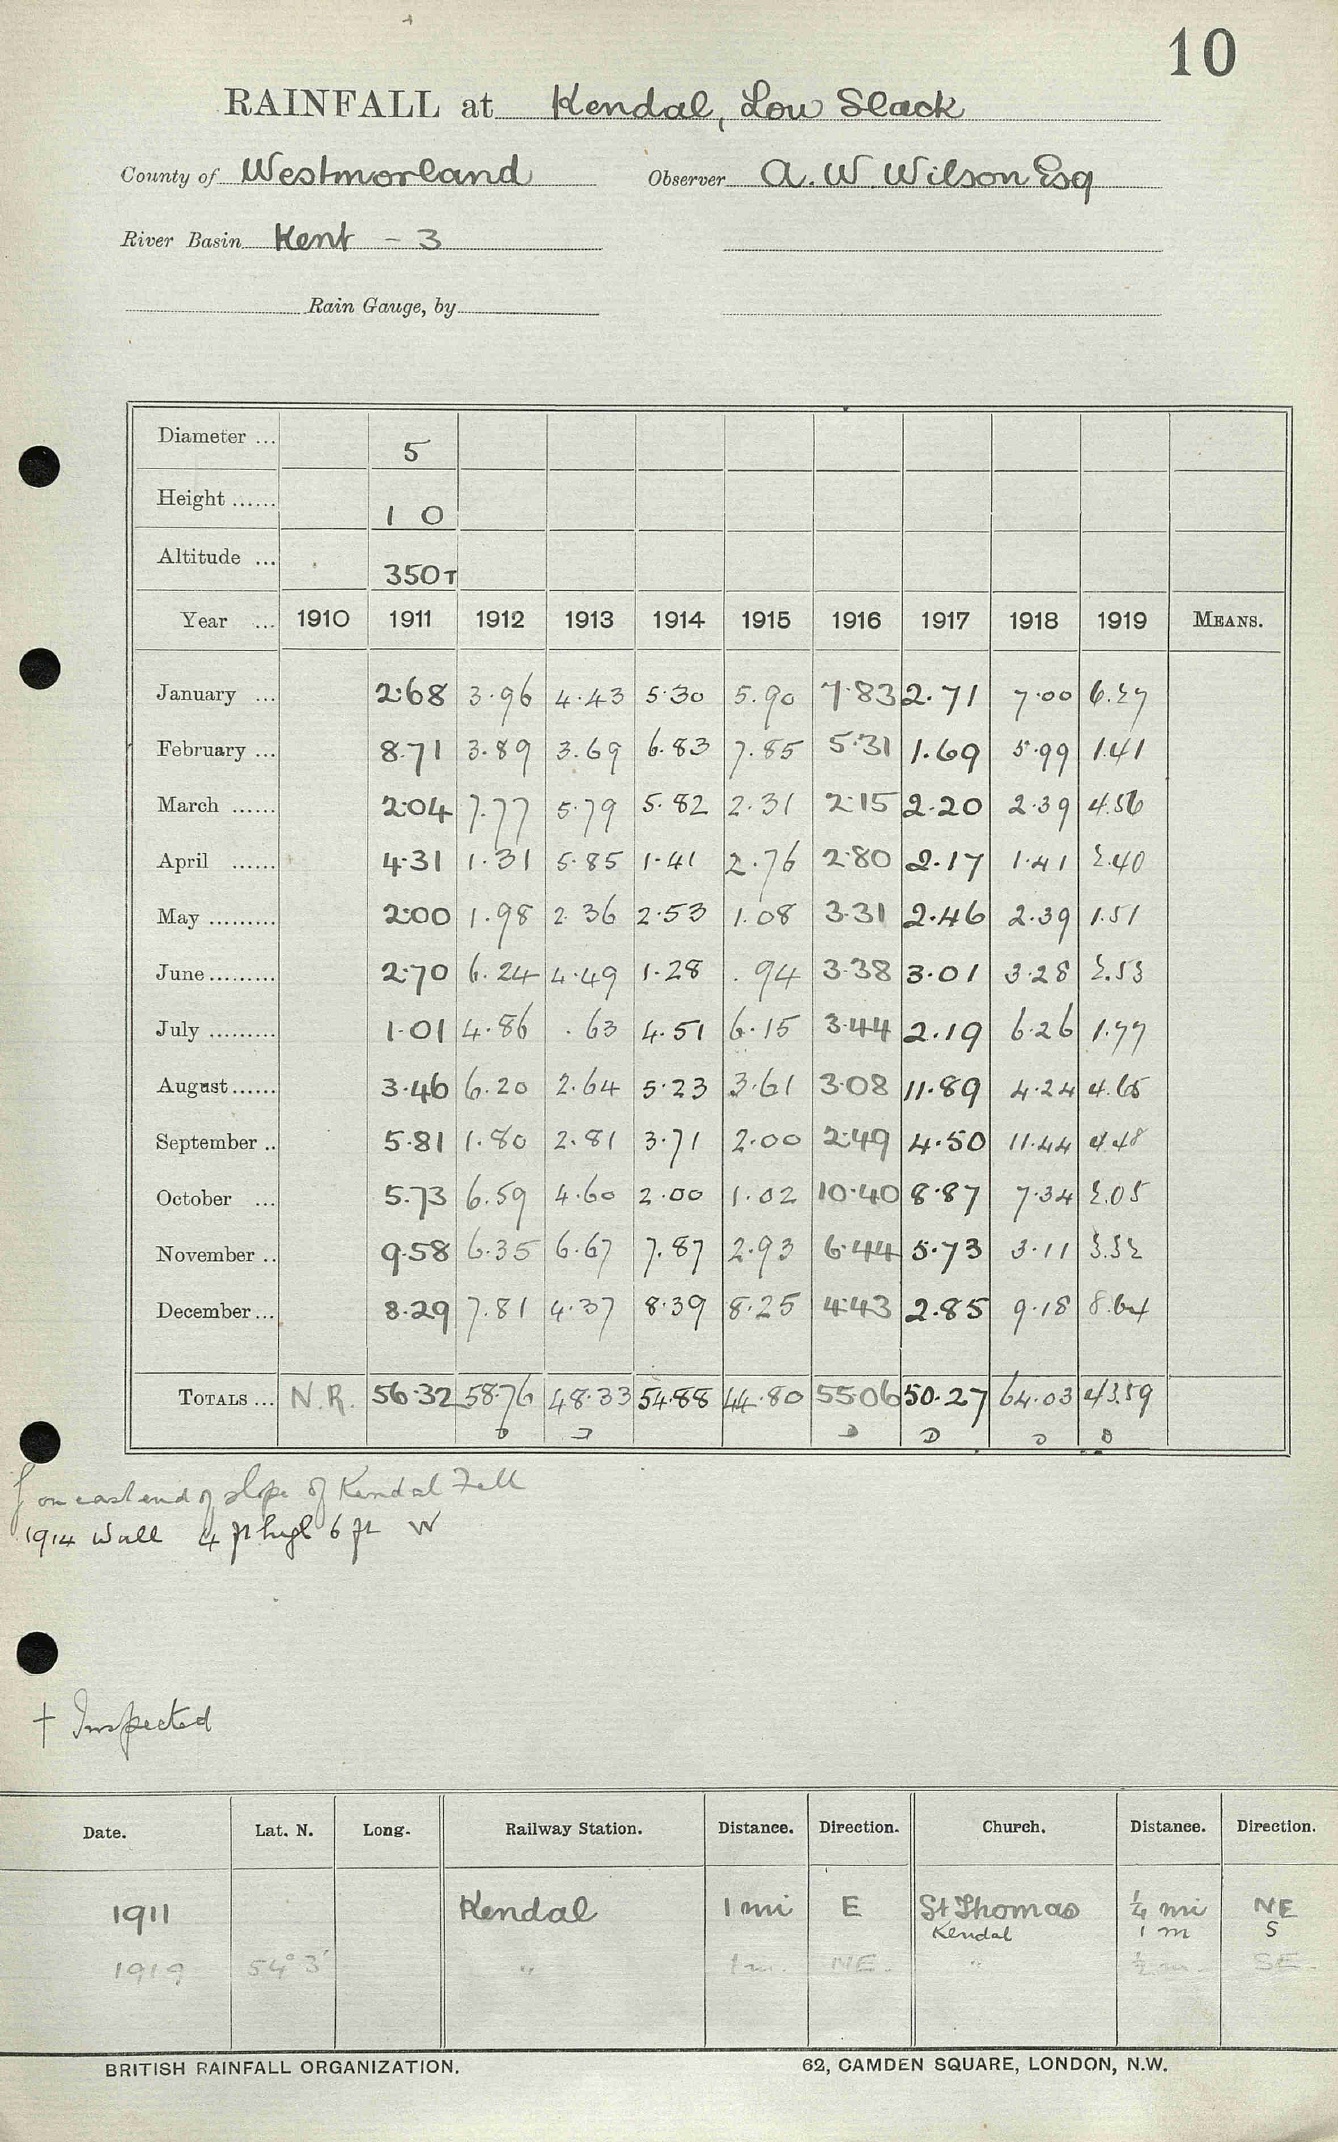 10
RAINFALL at Kendal, Low Slack
County of Westmorland Observer A. W. Wilson Esq
River Basin Kent - 3
Rain Gauge, by
Diameter ... 5
Height ...... 1 0
Altitude ... 350T
Year ... 1910 1911 1912 1913 1914 1915 1916 1917 1918 1919 MEANS.
January ... 2.68 3.96 4.43 5.30 5.90 7.83 2.71 7.00 6.27
February ... 8.71 3.89 3.69 6.83 7.85 5.31 1.69 5.99 1.41
March ...... 2.04 7.77 5.79 5.82 2.31 2.15 2.20 2.39 4.56
April ...... 4.31 1.31 5.85 1.41 2.76 2.80 2.17 1.41 2.40
May ......... 2.00 1.98 2.36 2.53 1.08 3.31 2.46 2.39 1.51
June ......... 2.70 6.24 4.49 1.28 .94 3.38 3.01 3.28 2.53
July ......... 1.01 4.86 .63 4.51 6.15 3.44 2.19 6.26 1.77
August ...... 3.46 6.20 2.64 5.23 3.61 3.08 11.89 4.24 4.65
September .. 5.81 1.80 2.81 3.71 2.00 2.49 4.50 11.44 4.48
October ... 5.73 6.59 4.60 2.00 1.02 10.40 8.87 7.34 2.05
November .. 9.58 6.35 6.67 7.87 2.93 6.44 5.73 3.11 3.32
December ... 8.29 7.81 4.37 8.39 8.25 4.43 2.85 9.18 8.64
TOTALS ... N.R. 56.32 58.76 48.33 54.88 44.80 55.06 50.27 64.03 43.59
on east end of slope of Kendal Fell
1914 Wall 4 ft high 6 ft W
† Inspected
Date. Lat. N. Long. Railway Station. Distance. Direction. Church. Distance. Direction.
1911 Kendal 1 mi E St Thomas ¼ mi NE
Kendal 1 m S
1919 54° 3' " 1 m. NE. " ½ m. SE.
BRITISH RAINFALL ORGANIZATION. 62, CAMDEN SQUARE, LONDON, N.W.